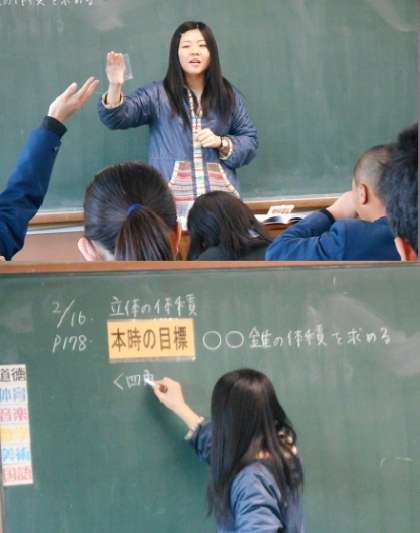 の体積を求める
2/16. 立体の体積
P178. 本時の目標 ○○錐の体積を求める
<四角
道徳
体育
音楽
美術
国語